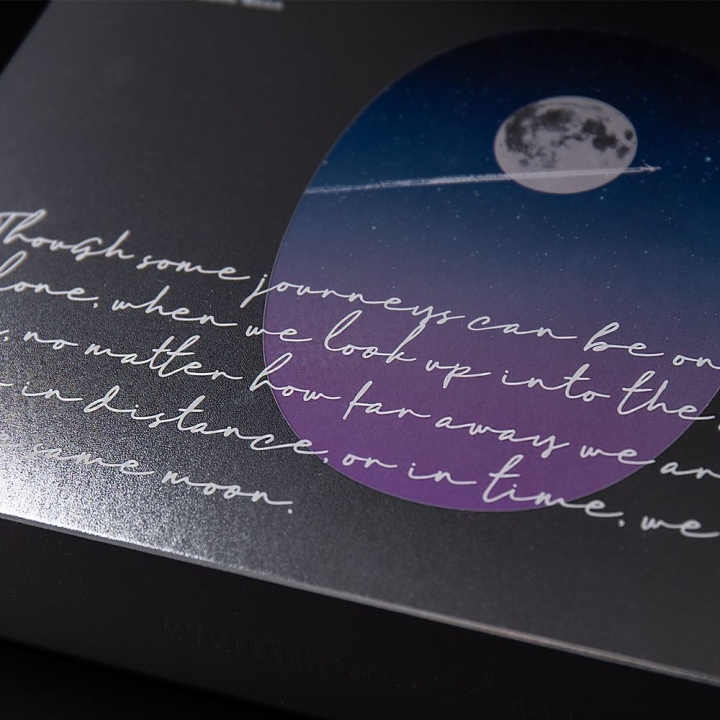 Though some journeys can be on
lone, when we look up into the
, no matter how far away we ar
in distance, or in time, we
same moon.